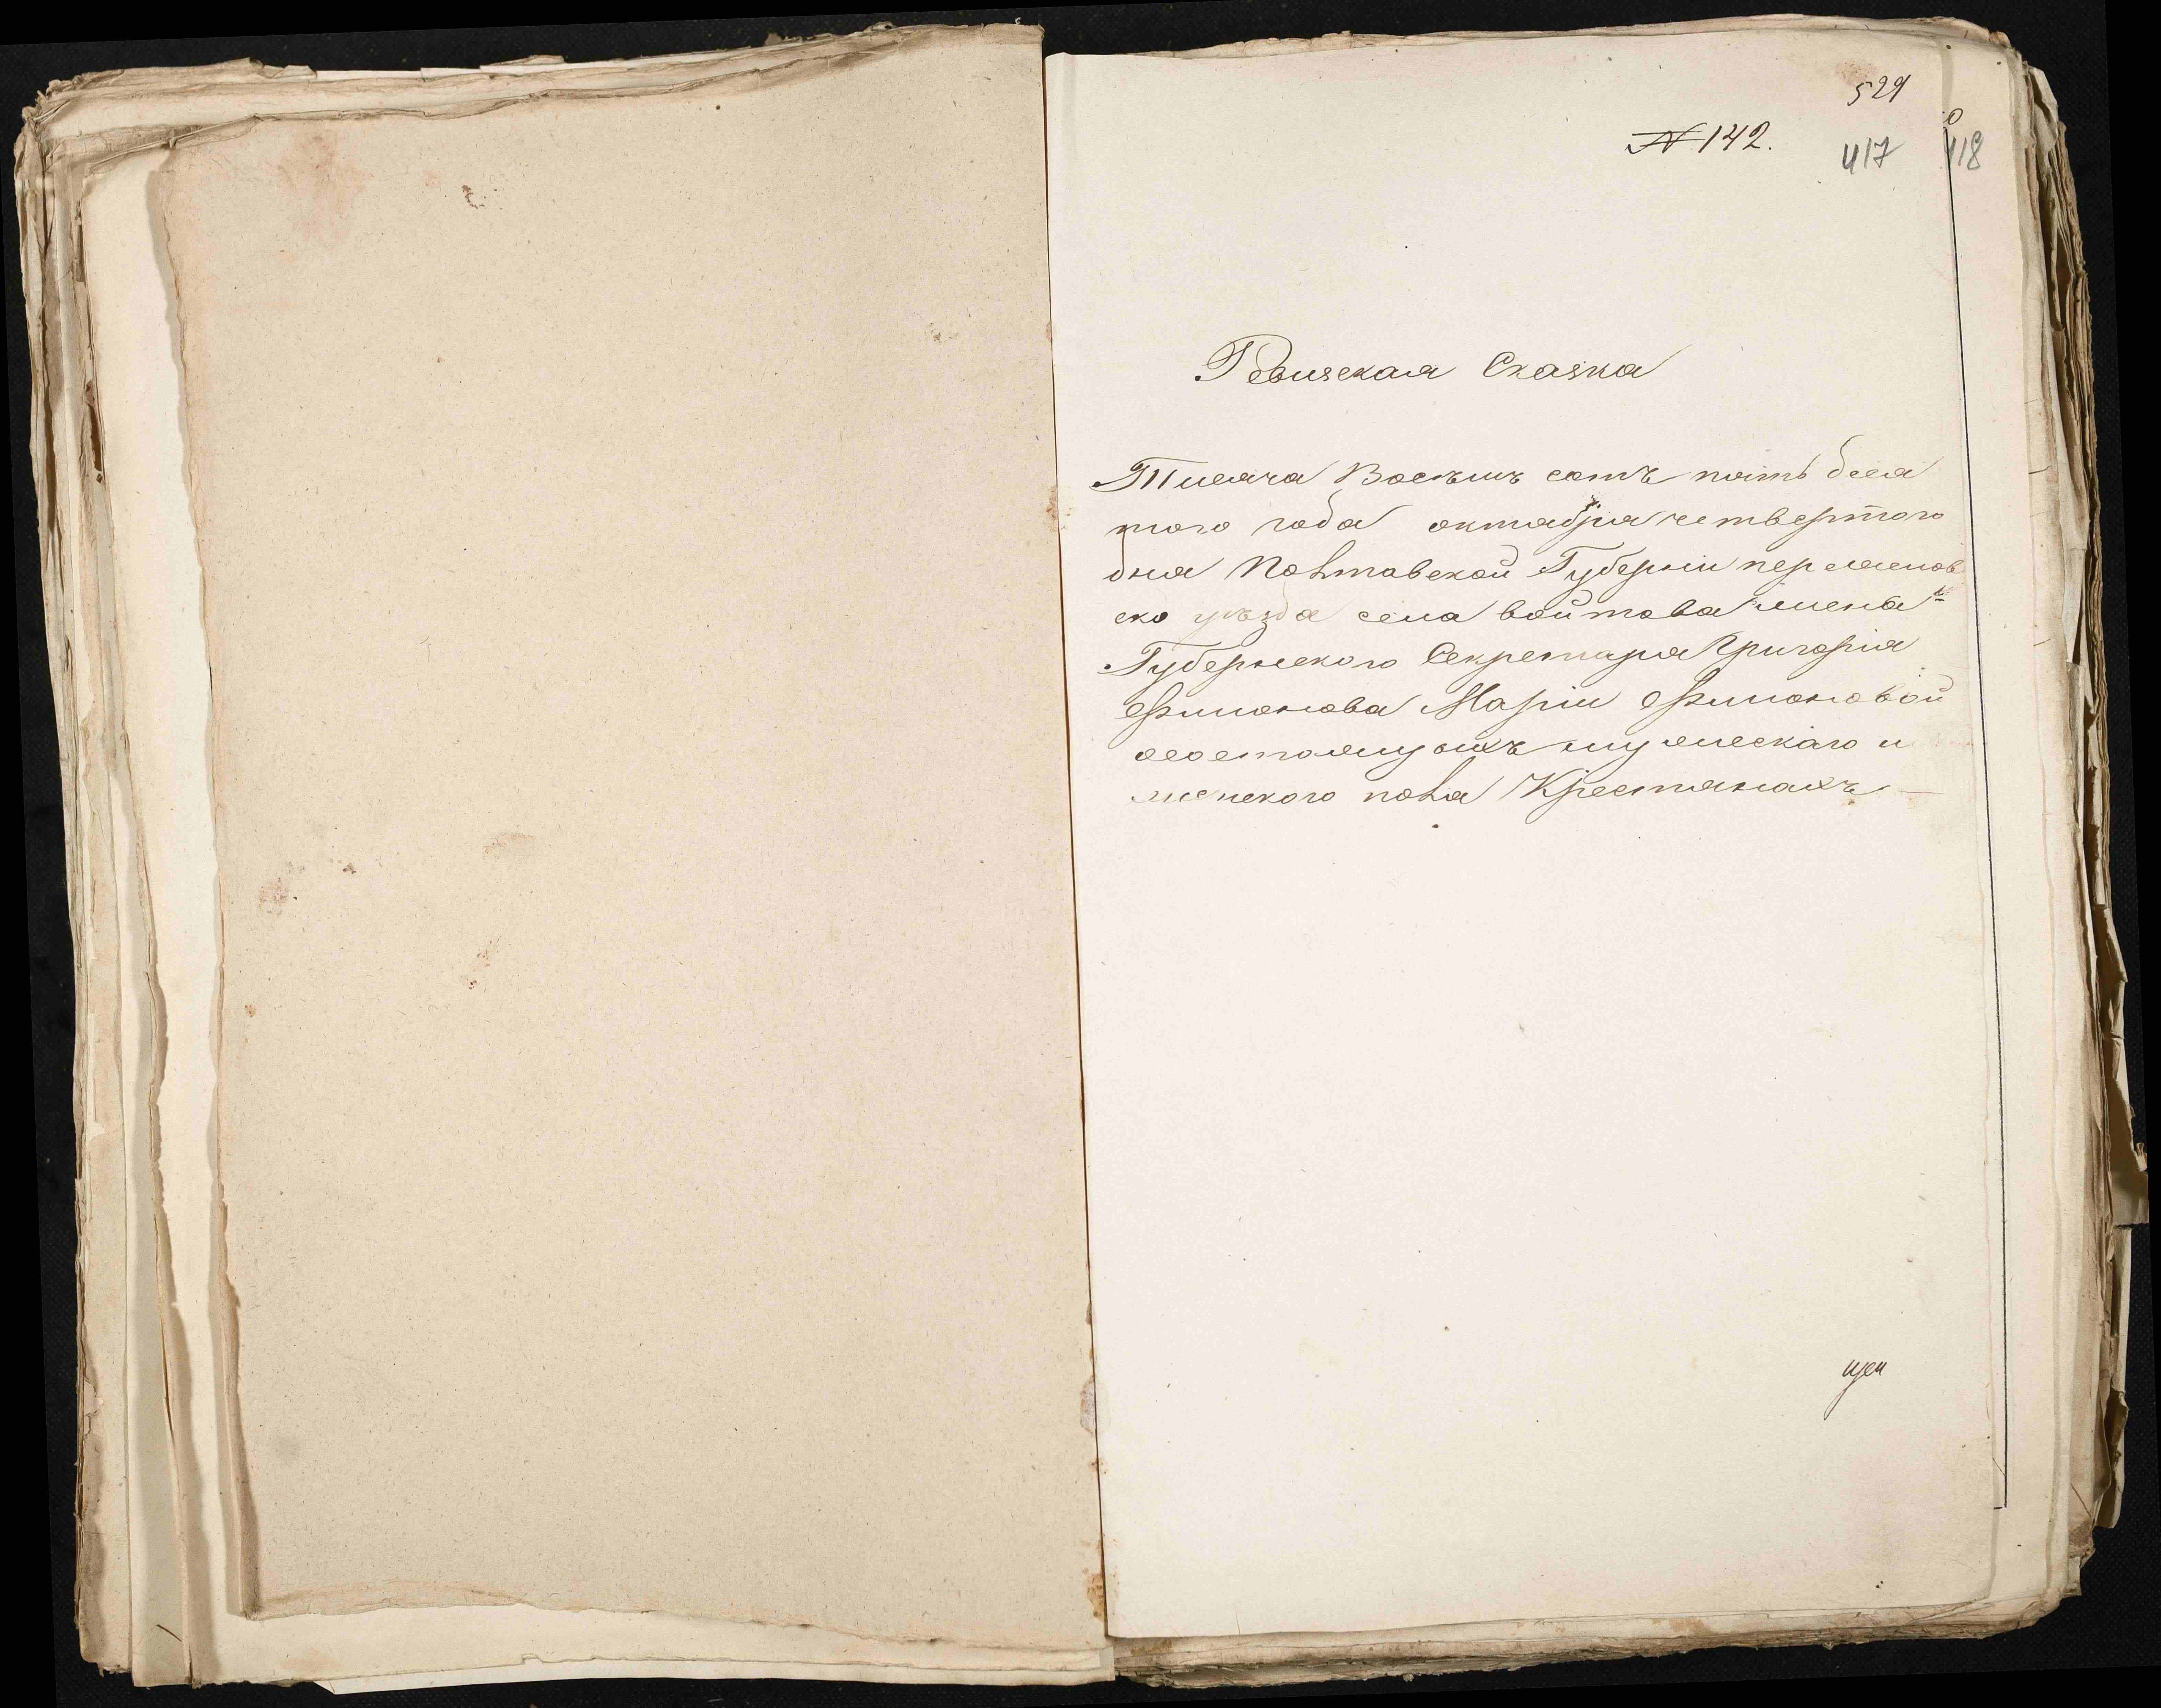 529
№ 142.
417 118
Ревизская Сказка
Тисяча Восемъ сотъ пять деся
того года октября четвертого
дня Полтавской Губерніи переяслов
ско уѣзда села войтова жены
Губернского Секретаря Григорія
Филонова Маріи Филоновой
осостоящихъ мужескаго и
женского пола Крестянахъ